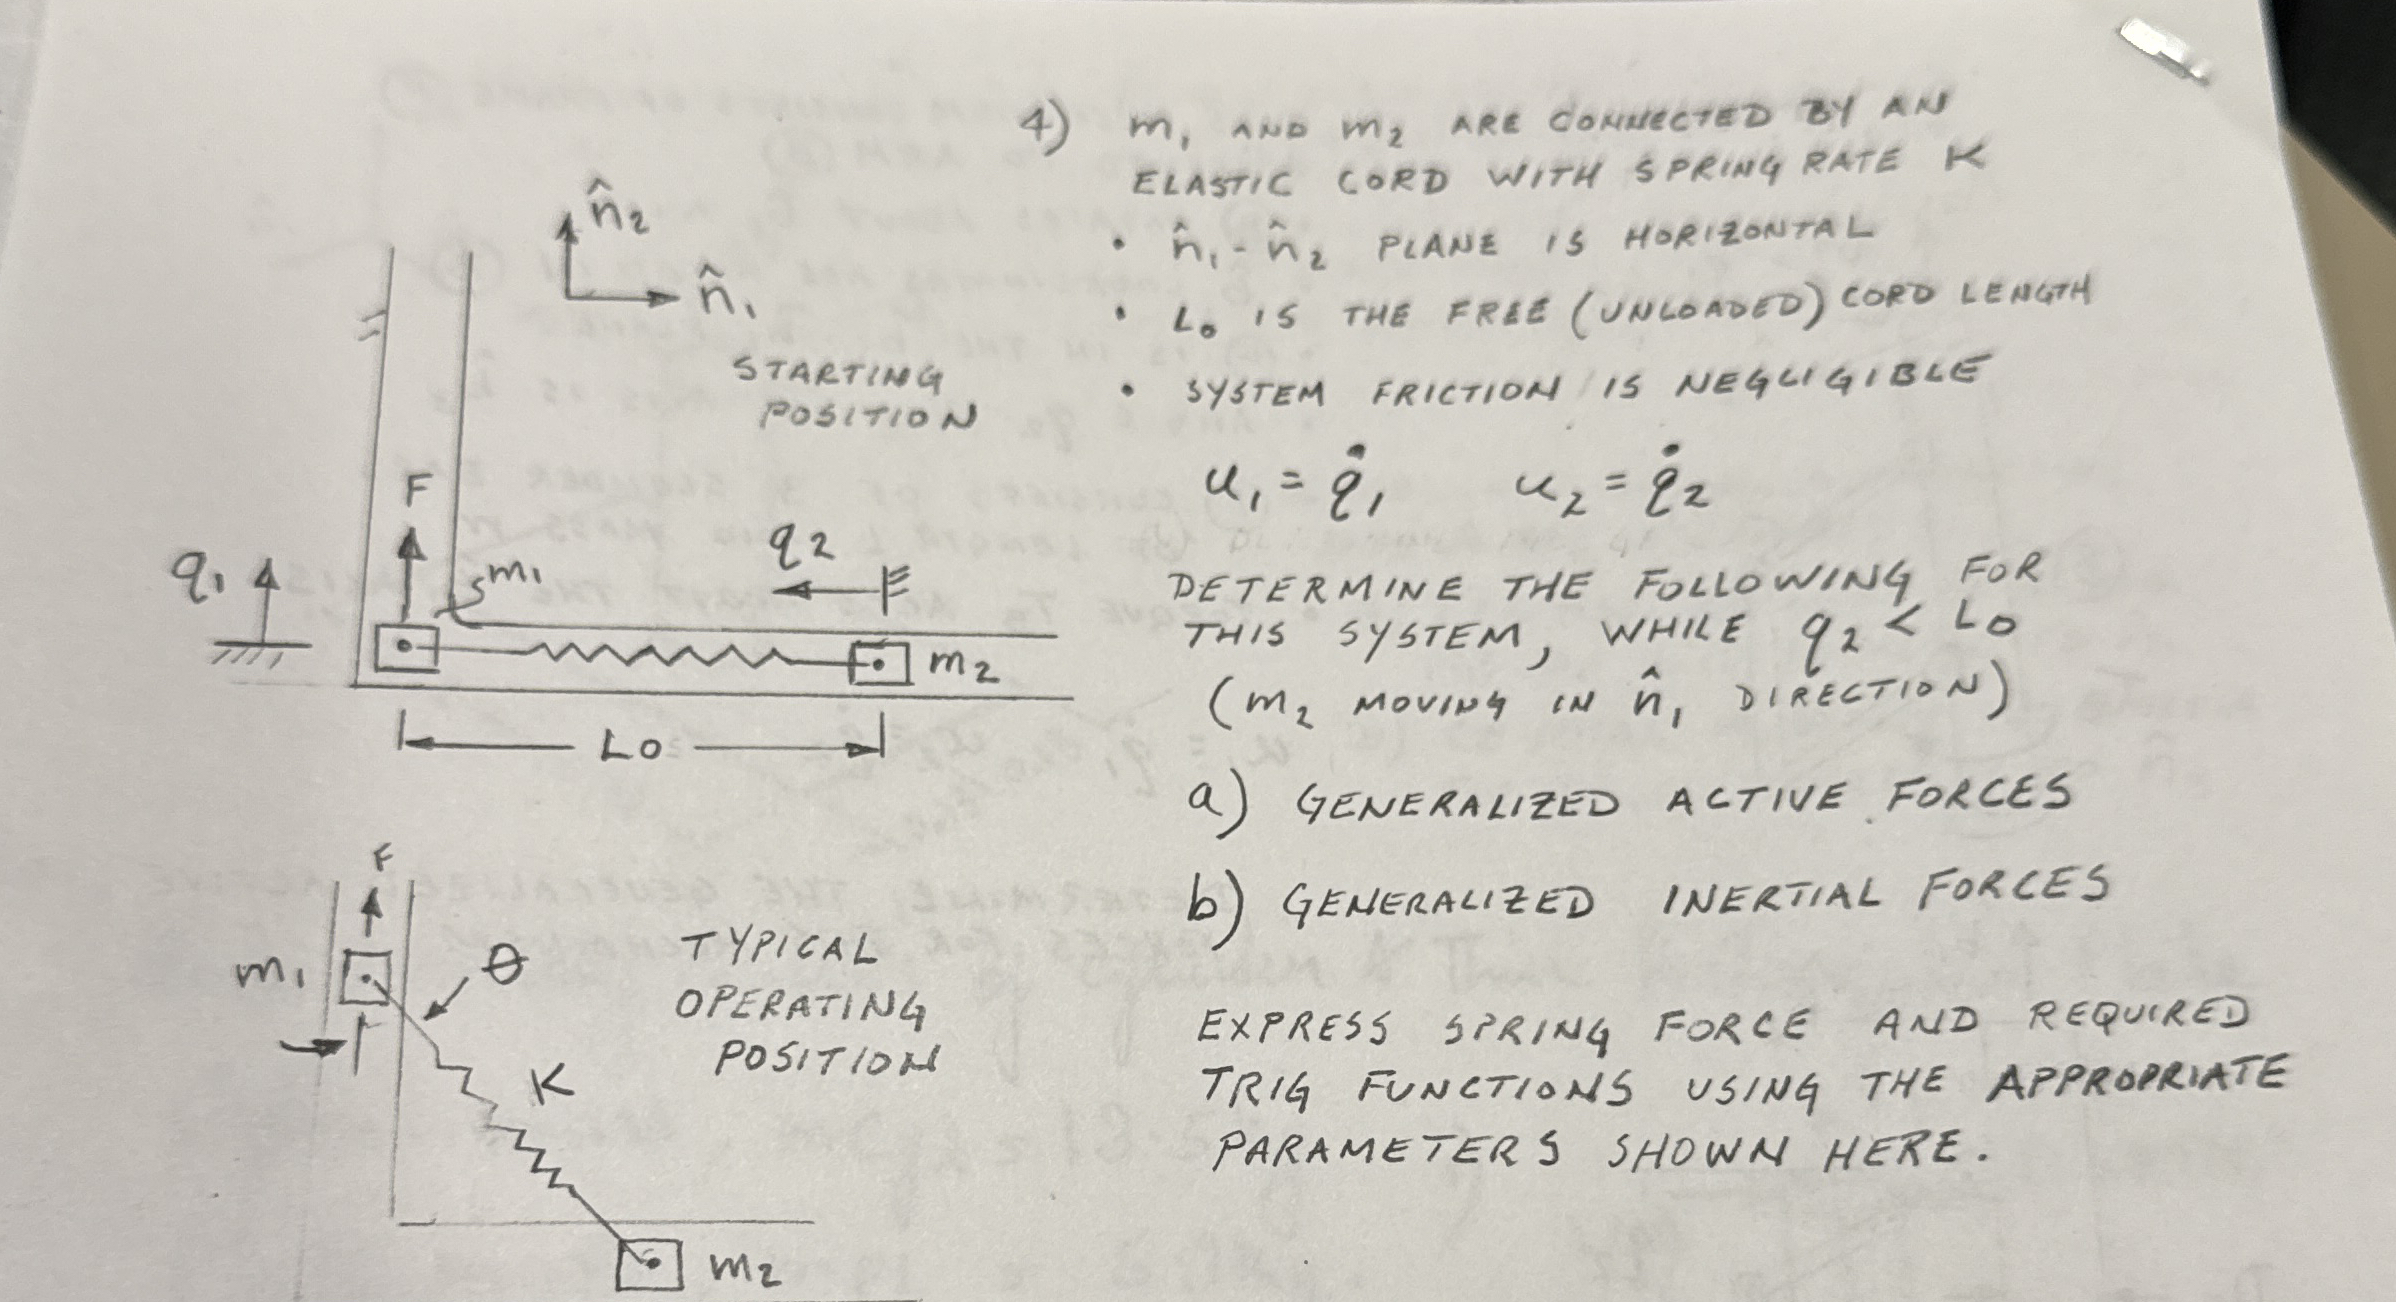 4) m₁ AND m₂ ARE CONNECTED BY AN
ELASTIC CORD WITH SPRING RATE K
• n̂₁-n̂₂ PLANE IS HORIZONTAL
• L₀ IS THE FREE (UNLOADED) CORD LENGTH
• SYSTEM FRICTION IS NEGLIGIBLE
u₁ = q̇₁ u₂ = q̇₂
DETERMINE THE FOLLOWING FOR
THIS SYSTEM, WHILE q₂ < L₀
(m₂ MOVING IN n̂₁ DIRECTION)
a) GENERALIZED ACTIVE FORCES
b) GENERALIZED INERTIAL FORCES
EXPRESS SPRING FORCE AND REQUIRED
TRIG FUNCTIONS USING THE APPROPRIATE
PARAMETERS SHOWN HERE.
n̂₂
n̂₁
STARTING
POSITION
F
q₁
m₁
q₂
m₂
L₀
F
m₁
θ
K
TYPICAL
OPERATING
POSITION
m₂